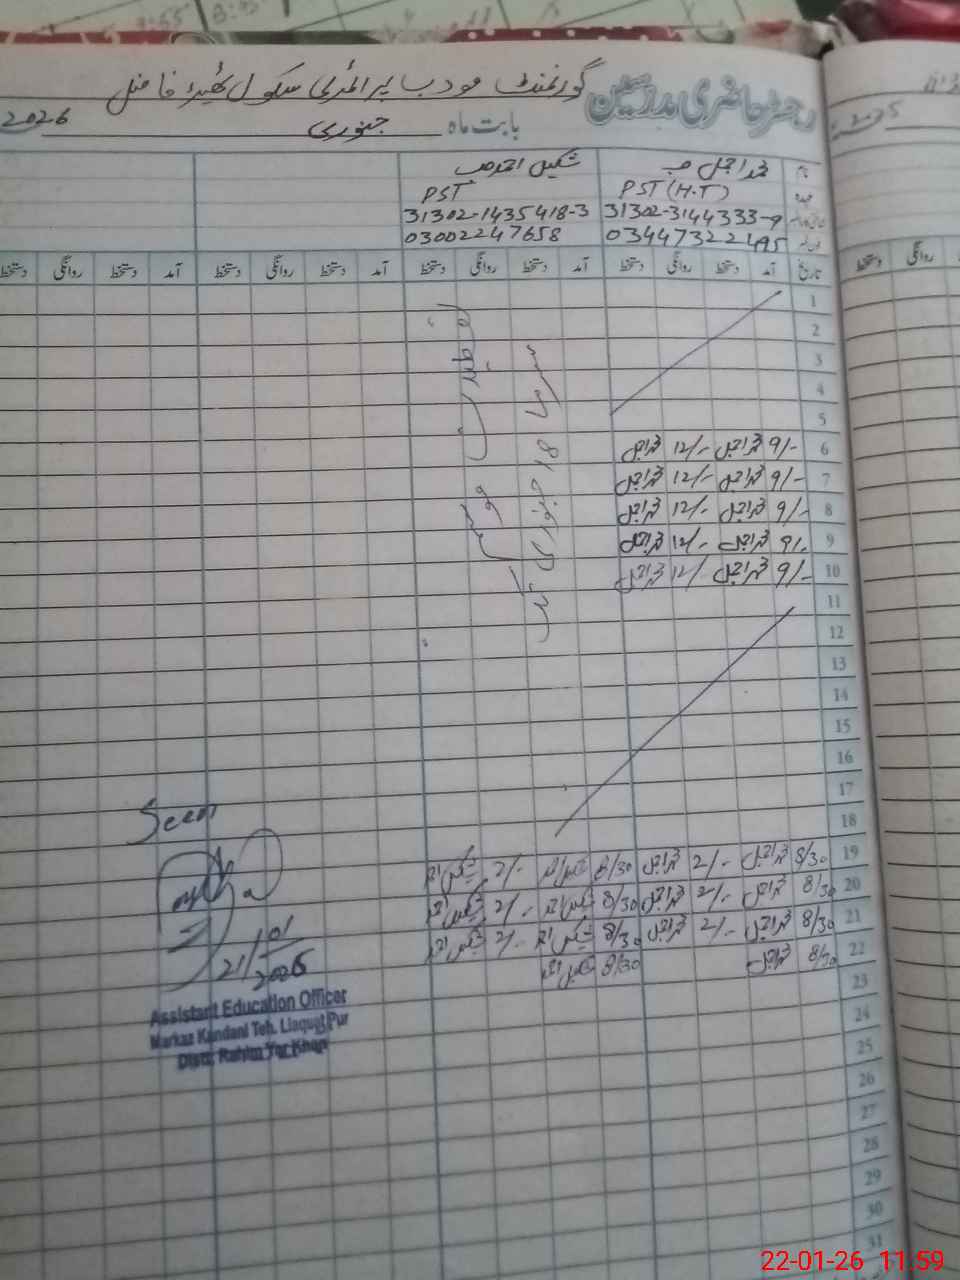 رجسٹر حاضری مدرسین گورنمنٹ مودب پرائمری سکول بھیڑا فاضل
بابت ماہ جنوری 2026
نام محمد اجمل صب شکیل احمد صب
عہدہ PST (H.T) PST
31302-3144333-9 31302-1435418-3
03447322495 03002247658
تاریخ آمد دستخط روانگی دستخط آمد دستخط روانگی دستخط آمد دستخط روانگی دستخط آمد دستخط روانگی دستخط
روانگی دستخط
1
2
3
4
5
6 9/- محمد اجمل 12/- محمد اجمل
7 9/- محمد اجمل 12/- محمد اجمل
8 9/- محمد اجمل 12/- محمد اجمل
9 9/- محمد اجمل 12/- محمد اجمل
10 9/- محمد اجمل 12/- محمد اجمل
تعطیلات موسم
سرما 18 جنوری تک
11
12
13
14
15
16
17
18
19 8/30 محمد اجمل 2/- محمد اجمل 8/30 شکیل احمد 2/- شکیل احمد
20 8/30 محمد اجمل 2/- محمد اجمل 8/30 شکیل احمد 2/- شکیل احمد
21 8/30 محمد اجمل 2/- محمد اجمل 8/30 شکیل احمد 2/- شکیل احمد
22 8/30 محمد اجمل 8/30 شکیل احمد
23
24
25
26
27
28
29
30
31
Seen
21/01/2026
Assistant Education Officer
Markaz Kandani Teh. Liaquat Pur
Distt. Rahim Yar Khan
22-01-26 11.59